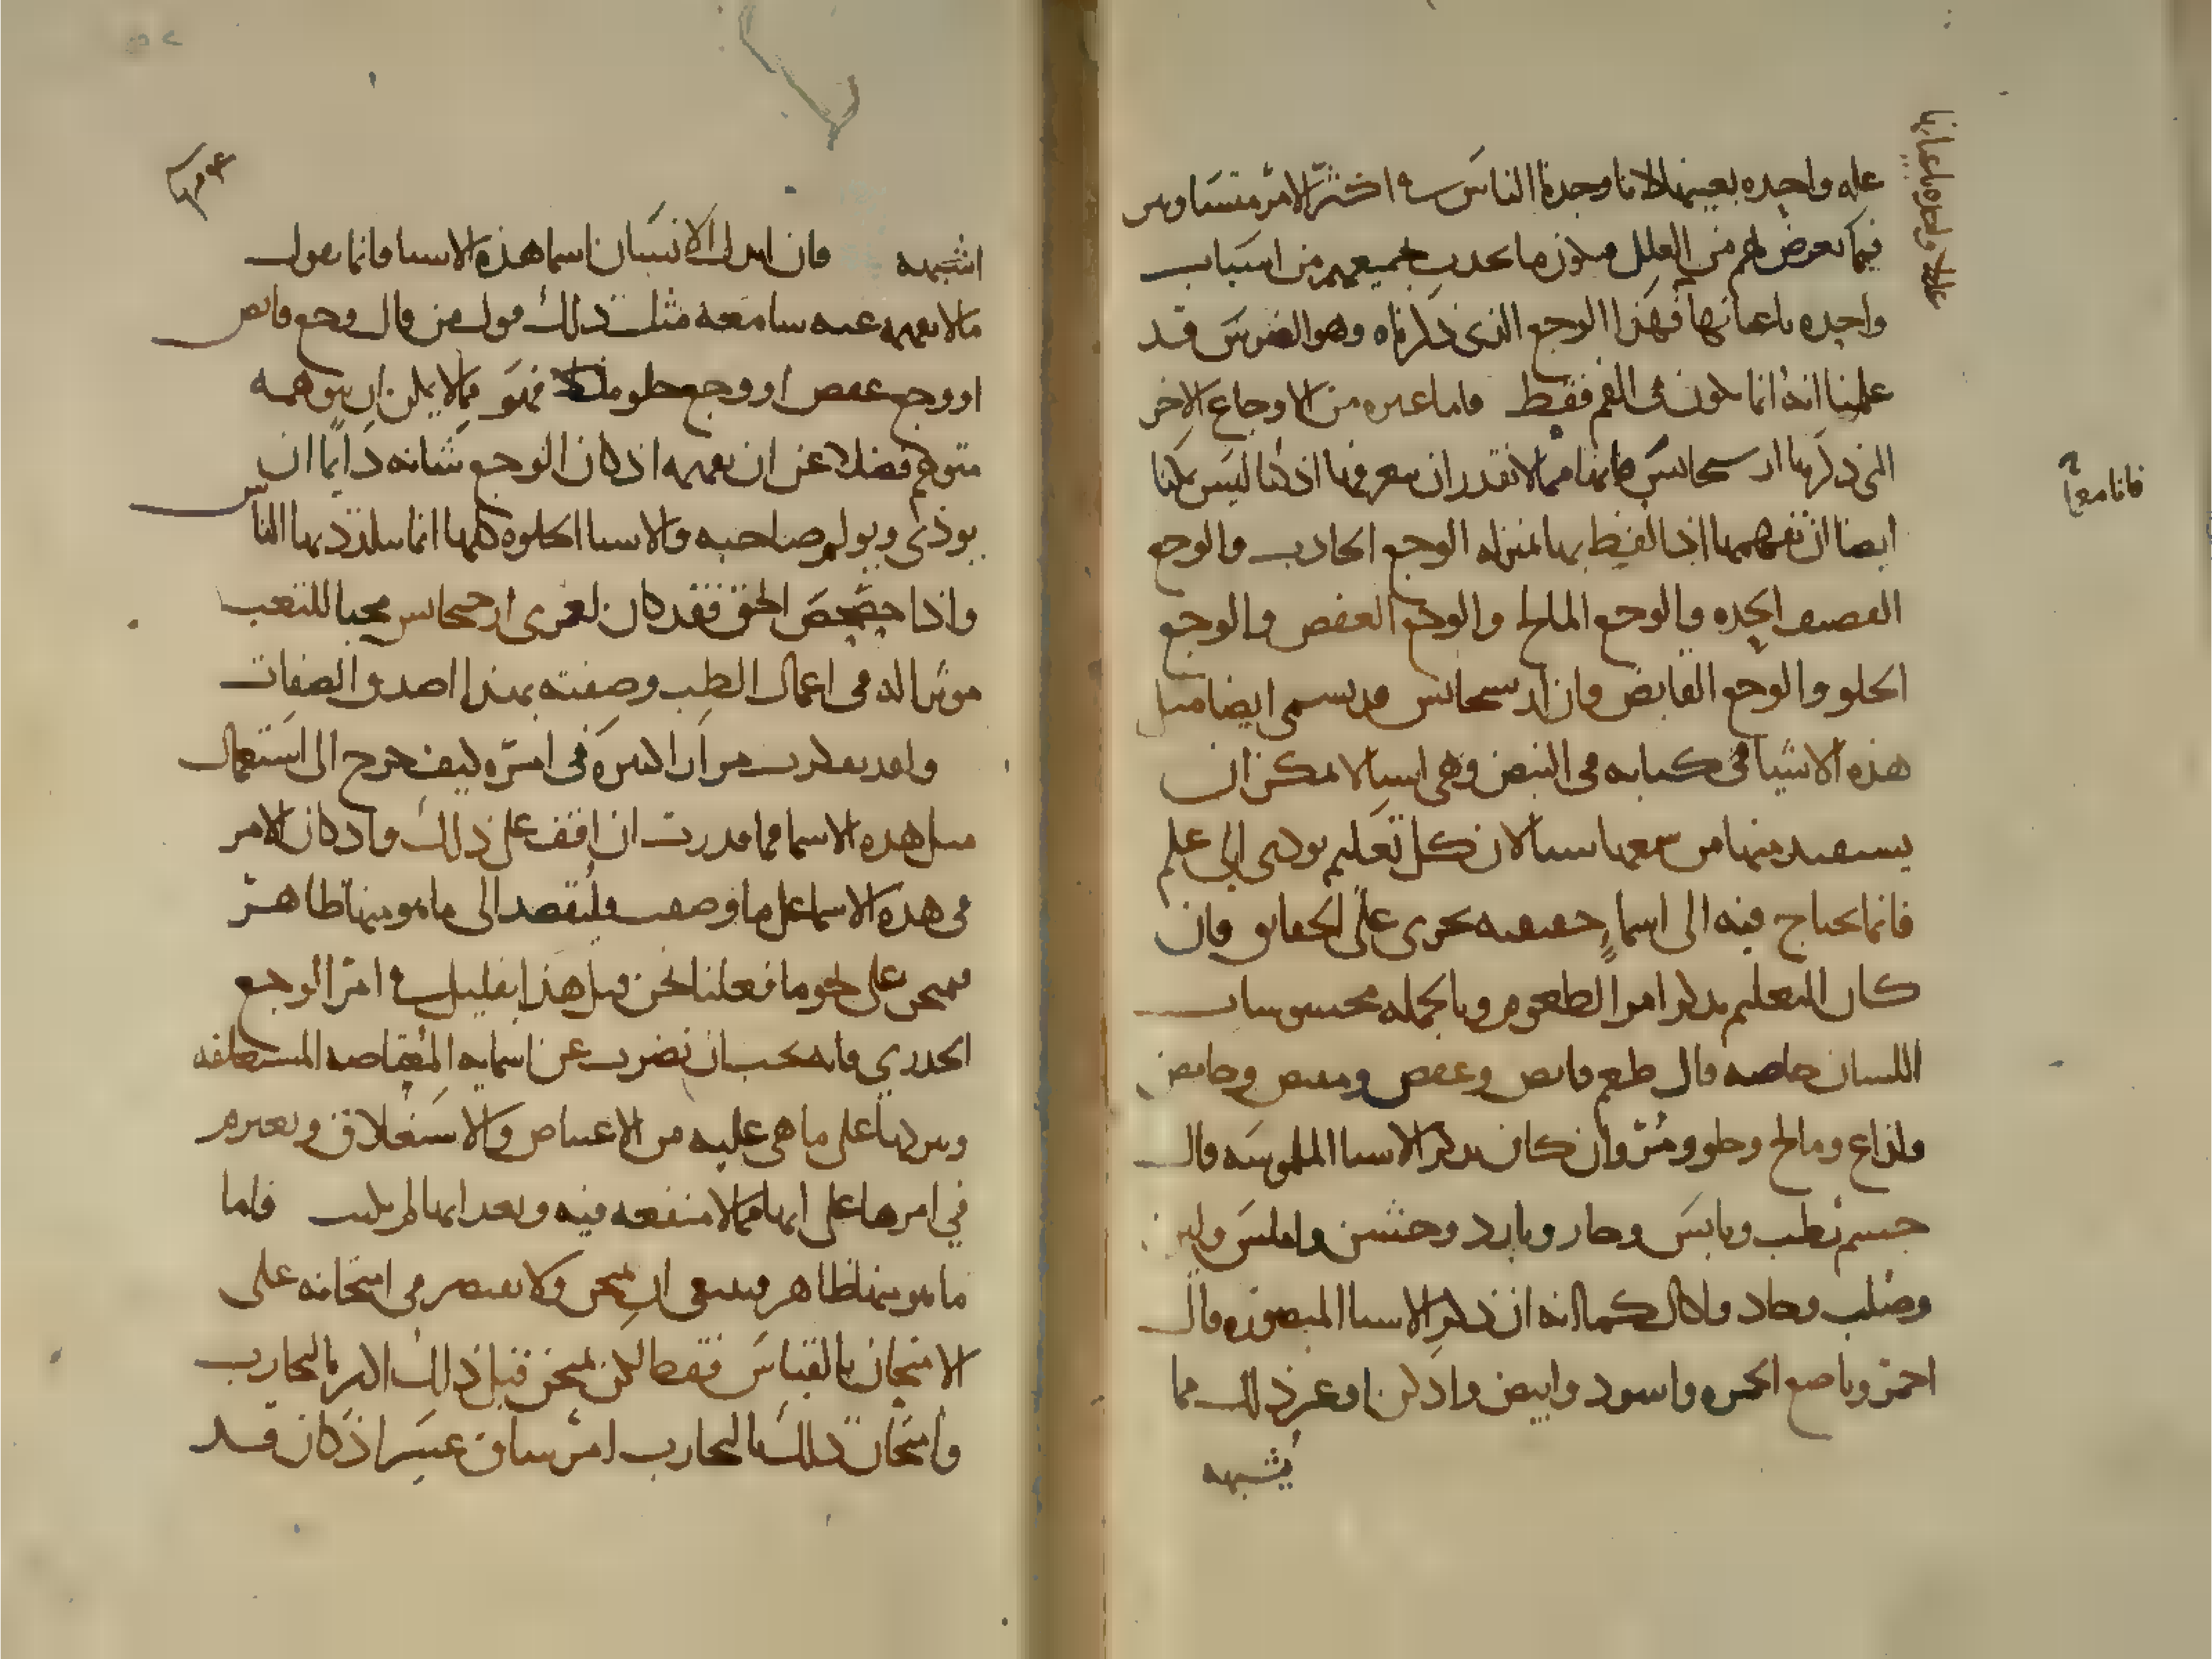 علة واحدة بعينها لانا وجدنا الناس في اكثر الامر متساوين
فيما يعرض لهم من العلل فيكون ما يحدث بجميعهم من اسباب
واحدة باعيانها فهذا الوجع الذي ذكرناه وهو الضرس قد
علمنا انه انما يكون في الفم فقط فاما غيره من الاوجاع الاخر
التي ذكرها ارسجانس فانها مما لا نقدر ان نعرفها اذ كنا ليس يمكننا
ايضا ان نفهمها اذا لفظ بها بمنزلة الوجع الجاذب والوجع
القصيف الحدة والوجع المالح والوجع العفص والوجع
الحلو والوجع القابض وان ارسجانس قد يسمي ايضا مثل
هذه الاشيا في كتابه في النبض وهي اسما لا يمكن ان
يستفيد منها من سمعها شيا لان كل تعليم يودي الى علم
فانما يحتاج فيه الى اسما حقيقية تجري على الحقايق فان
كان التعليم بذكر امر الطعوم وبالجملة محسوسات
اللسان خاصة قال طعم قابض وعفص وحامض
ولذاع ومالح وحلو ومر وان كان يذكر الاشيا الملموسة قال
جسم رطب ويابس وحار وبارد وخشن واملس ولين
وصلب وحاد وكال كما انه ان ذكر الاشيا المبصرة قال
احمر وناصع الحمرة واسود وابيض وادكن او غير ذلك مما
يشبهه
فانا معا
اشبهه فان ابدل الانسان اسما هذه الاشيا فانما يقول
ما لا يفهمه عنه سامعه مثل ذلك قول من قال وجع قابض
او وجع عفص او وجع حلو فهو مما لا يمكن ان يتوهمه
متوهم فضلا عن ان يفهمه اذ كان الوجع شانه دايما ان
يوذي ويولم صاحبه والاشيا الحلوة كلها انما يستلذ بها الناس
واذا حصحص الحق فقد كان لعمري ارسجانس محبا للتعب
موثرا له في اعمال الطب وصفته بهذا اصدق الصفات
ولقد تفكرت مرارا كثيرة في امره وكيف خرج الى استعمال
مثل هذه الاسما فما قدرت ان اقف على ذلك واذ كان الامر
في هذه الاسما على ما وصفت فلنقصد الى ما هو منها ظاهر
فنمتحن على نحو ما فعلنا نحن قبل هذا بقليل في امر الوجع
الخدري فانه يجب ان نضرب عن اسمايه المعتاصة المستغلقة
ونتركها على ما هي عليه من الاعتياص والاستغلاق ونعزم
في امرها على انها مما لا منفعة فيه ونعد انها لم تكتب فاما
ما هو منها ظاهر فينبغي ان يمتحن ولا نقتصر في امتحانه على
الامتحان بالقياس فقط لكن نمتحن قبل ذلك اكثر بالتجارب
وامتحان ذلك بالتجارب امر شاق عسر اذ كان قد